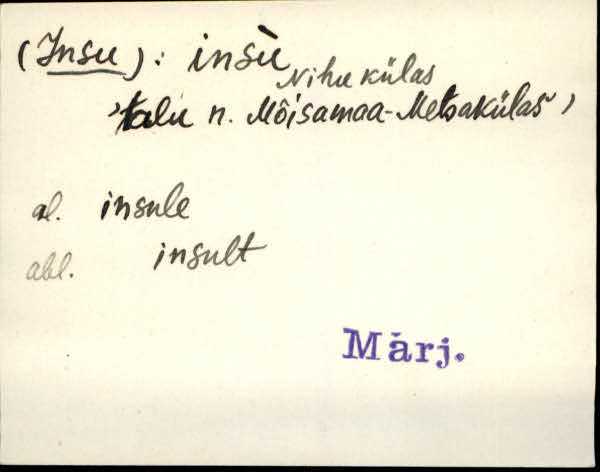 (Insu): insù
Nihu külas
'talu n. Mõisamaa-Metsakülas'
al. insule
abl. insult
Märj.